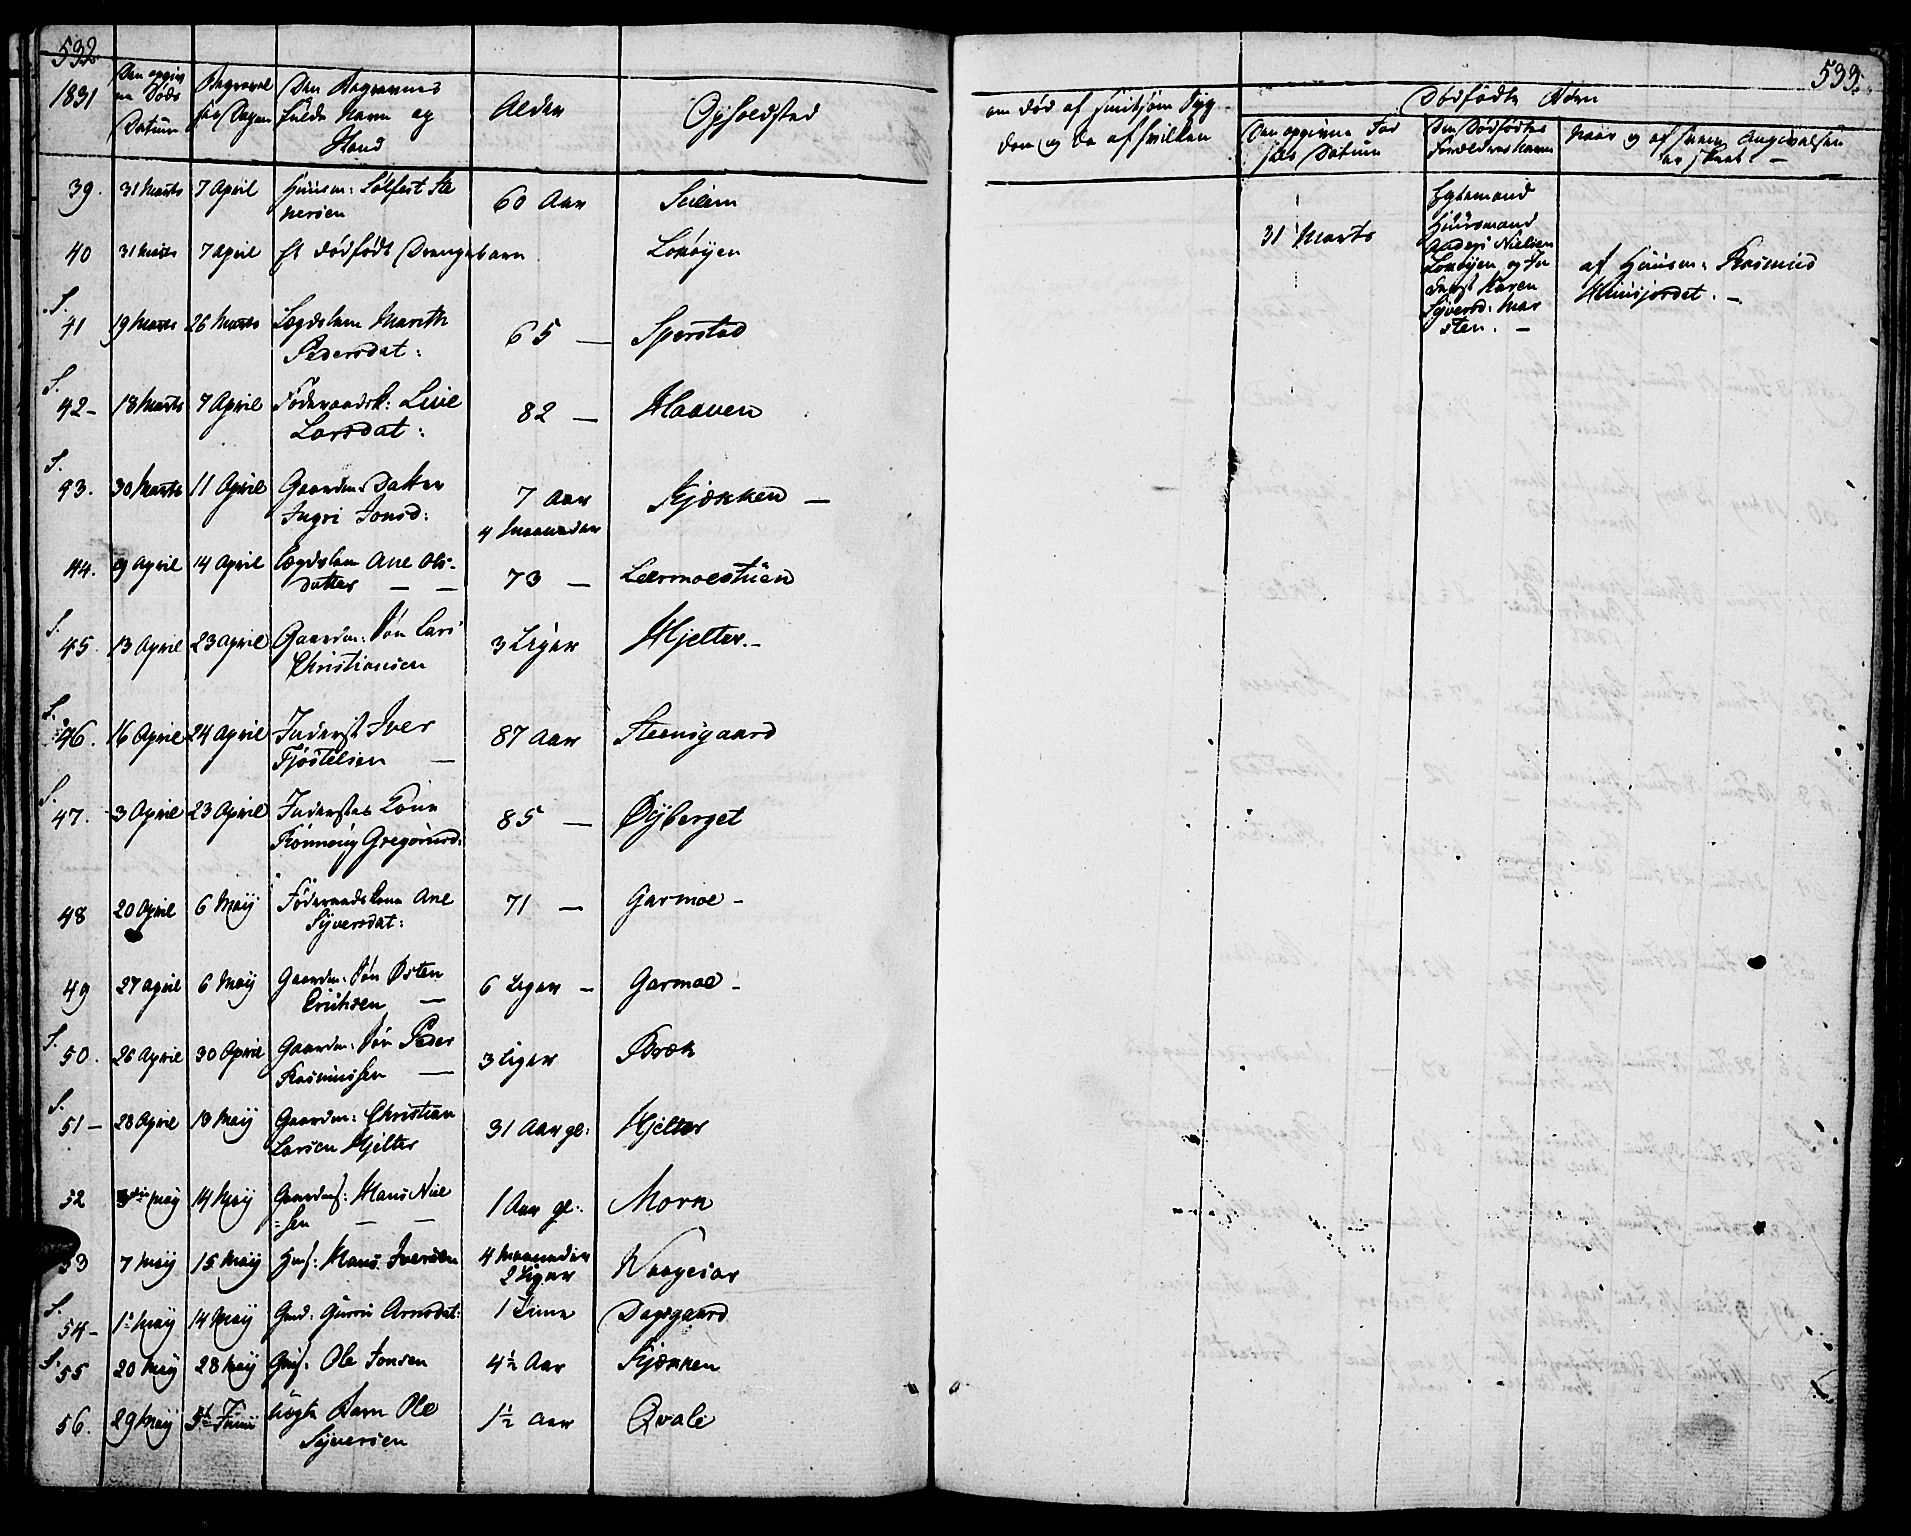 532
1831
Den opgiv
ne Døds
Datum
Begravel
ses Dagen
Den Begravnes
fulde Navn og
Stand
Alder
Opholdsted
39. 31 Marts 7 April Huusm: Sølfest Ste
nersen 60 Aar Seilem
40 31 Marts 7 April et dødfødt Drengebarn Lonøyen
S.
41 19 Marts 26 Marts Lægdslem Marith
Pedersdat: 65 — Sperstad
S.
42 - 18 Marts 7 April Føderaadsk: Live
Larsdat: 82 — Haaven
S.
43. 30 Marts 11 April Gaardm: Datter
Ingri Jonsd: 7 Aar
4 Maaneder Kjøkken —
44. 9 April 14 April Lægdslem Ane Ols-
datter — — 73 — Leermoestuen
S.
45. 13 April 23 April Gaardm: Søn Lars
Christiansen 3 Uger Hjelter. -
S.
46. 16 April 24 April Inderst Iver
Fjøstelsen — 87 Aar Steensgaard
S.
47. 3 April 23 April Inderstes Kone
Rønnoug Gregoriusd: 85 — Øyberget
48 20 April 6 Maij Føderaadskone Ane
Syversdat: 71 — Garmoe -
49 27 April 6 Maij Gaardm: Søn Østen
Erichsen — 6 Uger - Garmoe -
S.
50. 26 April 30 April Gaardm: Søn Peder
Rasmussen — 3 Uger Bræk
S.
51 - 28 April 13 Maij Gaardm: Christian
Larsen Hjelter 31 Aar gl: Hjelter
52 3die Maij 14 Maij Gaardms: Hans Niel
=sen — — 1 Aar gl: Mork
53 7 Maij 15 Maij Hms: Hans Iversen 4 Maaneder
2 Uger Vaagesar
S.
54 - 1te Maij 14 Maij Gmd: Guroe Arnsdat: 1 Time Dagsgaard
S.
55 20 Maij 28 Maij Gms: Ole Jonsen 4½ Aar Kjøkken
56. 29 Maij 5te Junii uægte Barn Ole
Syversen 1½ Aar Qvale
533.
om død af smitsom Syg-
dom og da af hvilken
Dødfødte Børn
Den opgivne Fød
sels Datum
Den Dødfødtes
Forældres Navn
Naar og af hvem Angivelsen
er skeet —
31 Marts
Egtemand
Huusmand
Anders Nielsen
Lonøyen og In
derst Karen
Syversd: Mar
sten. —
af Huusm: Rasmus
Huusjordet. —